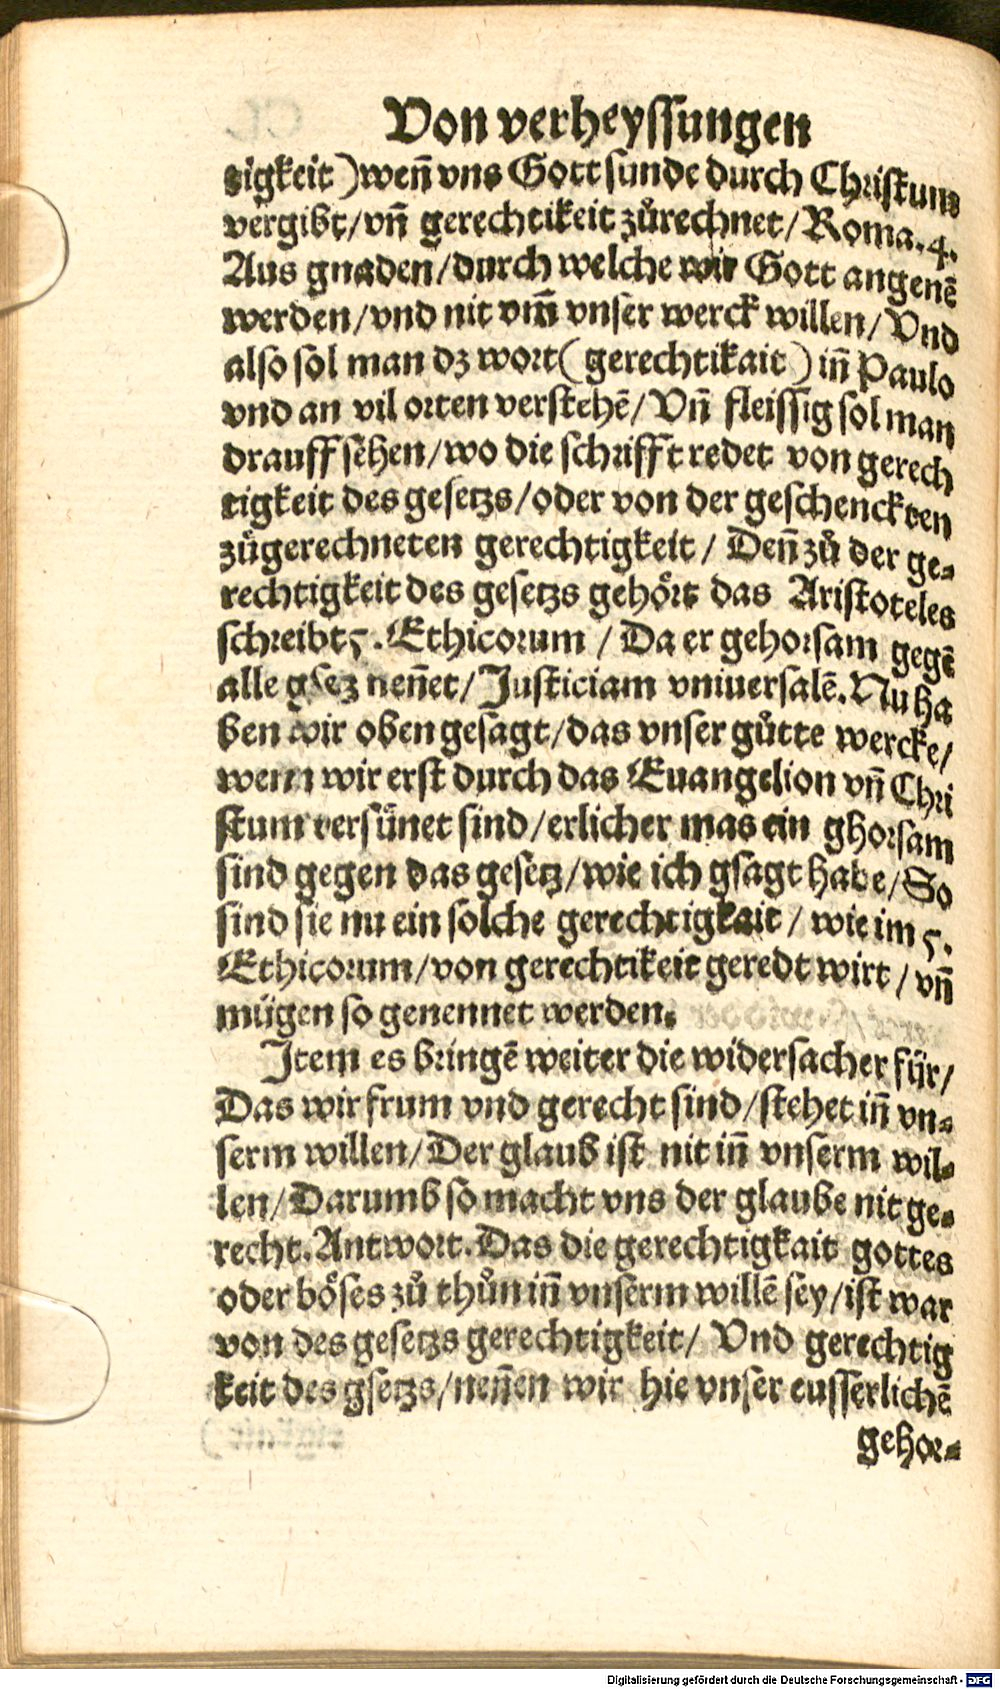 Von verheyssungen
tigkeit) weñ vns Gott sunde durch Christum
vergibt/ vñ gerechtikeit zůrechnet/ Roma. 4.
Aus gnaden/ durch welche wir Gott angenē
werden/ vnd nit vm̄ vnser werck willen/ Vnd
also sol man dz wort (gerechtikait) iñ Paulo
vnd an vil orten verstehē/ Vñ fleissig sol man
drauff sehen/ wo die schrifft redet von gerech
tigkeit des gesetzs/ oder von der geschenckten
zůgerechneten gerechtigkeit/ Deñ zů der ge-
rechtigkeit des gesetzs gehört das Aristoteles
schreibt 5. Ethicorum/ Da er gehorsam gegē
alle gsez neñet/ Justiciam vniuersalē. Nu ha
ben wir oben gesagt/ das vnser gůtte wercke/
wenn wir erst durch das Euangelion vñ Chri
stum versünet sind/ erlicher mas ein ghorsam
sind gegen das gesetz/ wie ich gsagt habe/ So
sind sie nu ein solche gerechtigkait/ wie im 5.
Ethicorum/ von gerechtikeit geredt wirt/ vñ
mügen so genennet werden.
Item es bringē weiter die widersacher für/
Das wir frum vnd gerecht sind/ stehet iñ vn-
serm willen/ Der glaub ist nit iñ vnserm wil-
len/ Darumb so macht vns der glaube nit ge-
recht. Antwort. Das die gerechtigkait gottes
oder böses zů thůn iñ vnserm willē sey/ ist war
von des gesetzs gerechtigkeit/ Vnd gerechtig
keit des gsetzs/ neñen wir hie vnser eusserlichē
gehor-
Digitalisierung gefördert durch die Deutsche Forschungsgemeinschaft - DFG